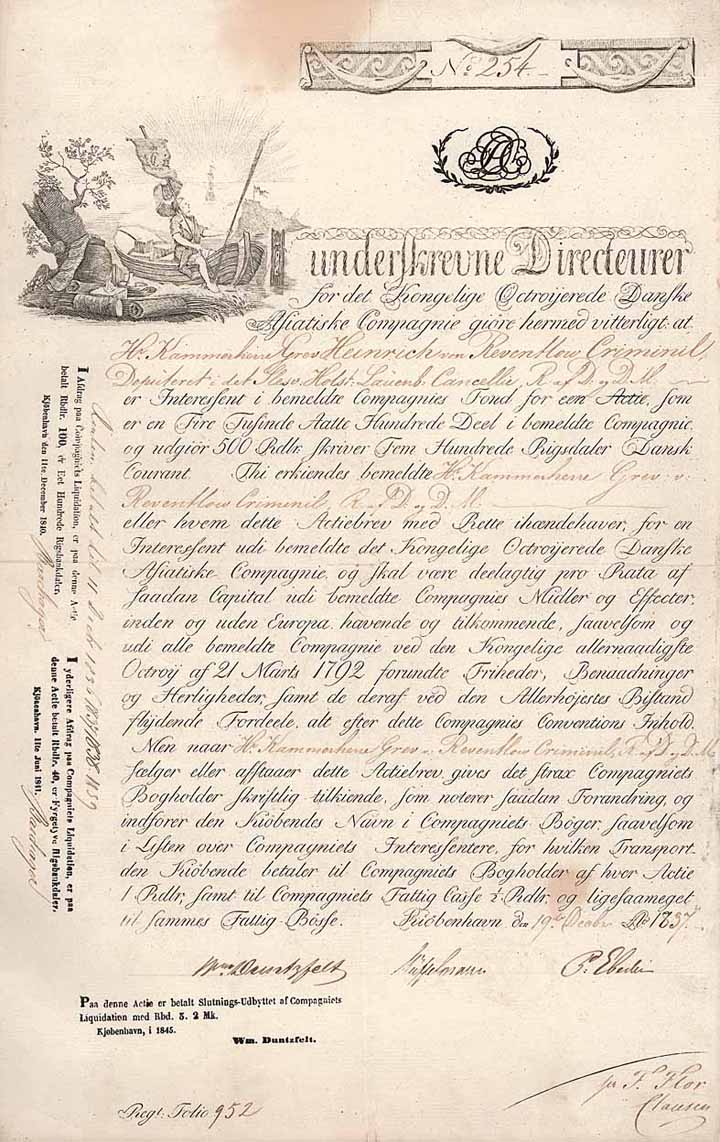 No 254
underskrevne Directeurer
for det Kongelige Octroijerede Danske
Asiatiske Compagnie giöre hermed vitterligt: at
Hr Kammerherre Grev Heinrich von Reventlow Criminil,
Deputeret i det Slesv. Holst. Lauenb. Cancellie, R. af D. og D. M.
er Interessent i bemeldte Compagnies Fond for een Actie, som
er en Fire Tusinde Aatte Hundrede Deel i bemeldte Compagnie,
og udgiör 500 Rdlr. skriver Fem Hundrede Rigsdaler Dansk
Courant. Thi erkiendes bemeldte Hr. Kammerherre Grev v.
Reventlow Criminil, R. af D. og D. M.
eller hvem dette Actiebrev med Rette ihændehaver, for en
Interessent udi bemeldte det Kongelige Octroijerede Danske
Asiatiske Compagnie, og skal være deelagtig pro Rata af
saadan Capital udi bemeldte Compagnies Midler og Effecter,
inden og uden Europa, havende og tilkommende, saavelsom og
udi alle bemeldte Compagnie ved den Kongelige allernaadigste
Octroij af 21 Marts 1792 forundte Friheder, Benaadninger
og Herligheder, samt de deraf ved den Allerhöjestes Bistand
flydende Fordeele, alt efter dette Compagnies Conventions Inhold.
Men naar Hr. Kammerherre Grev v. Reventlow Criminil, R. af D. og D. M.
sælger eller afstaaer dette Actiebrev, gives det strax Compagniets
Bogholder skriftlig tilkiende, som noterer saadan Forandring, og
indförer den Kiöbendes Navn i Compagniets Böger, saavelsom
i Listen over Compagniets Interessentere, for hvilken Transport
den Kiöbende betaler til Compagniets Bogholder af hver Actie
1 Rdlr, samt til Compagniets Fattig Casse Rdlr, og ligesaameget
til sammes Fattig-Bösse. Kiöbenhavn, den 19de Decbr. Ao 1837.
Wm Duntzfelt
P. Eberlin
I Afdrag paa Compagniets Liquidation, er paa denne Actie
betalt Rbdlr. 100, er Eet Hundrede Rigsbankdaler.
Kjöbenhavn den 11te December 1840.
I yderligere Afdrag paa Compagniets Liquidation, er paa
denne Actie betalt Rbdlr. 40, er Fyrgetyve Rigsbankdaler.
Kjöbenhavn. 11te Juni 1841.
Paa denne Actie er betalt Slutnings-Udbyttet af Compagniets
Liquidation med Rbd. 5. 2 Mk.
Kjøbenhavn, i 1845.
Wm. Duntzfelt.
F. Flor
Clausen
Regt. Folio 952